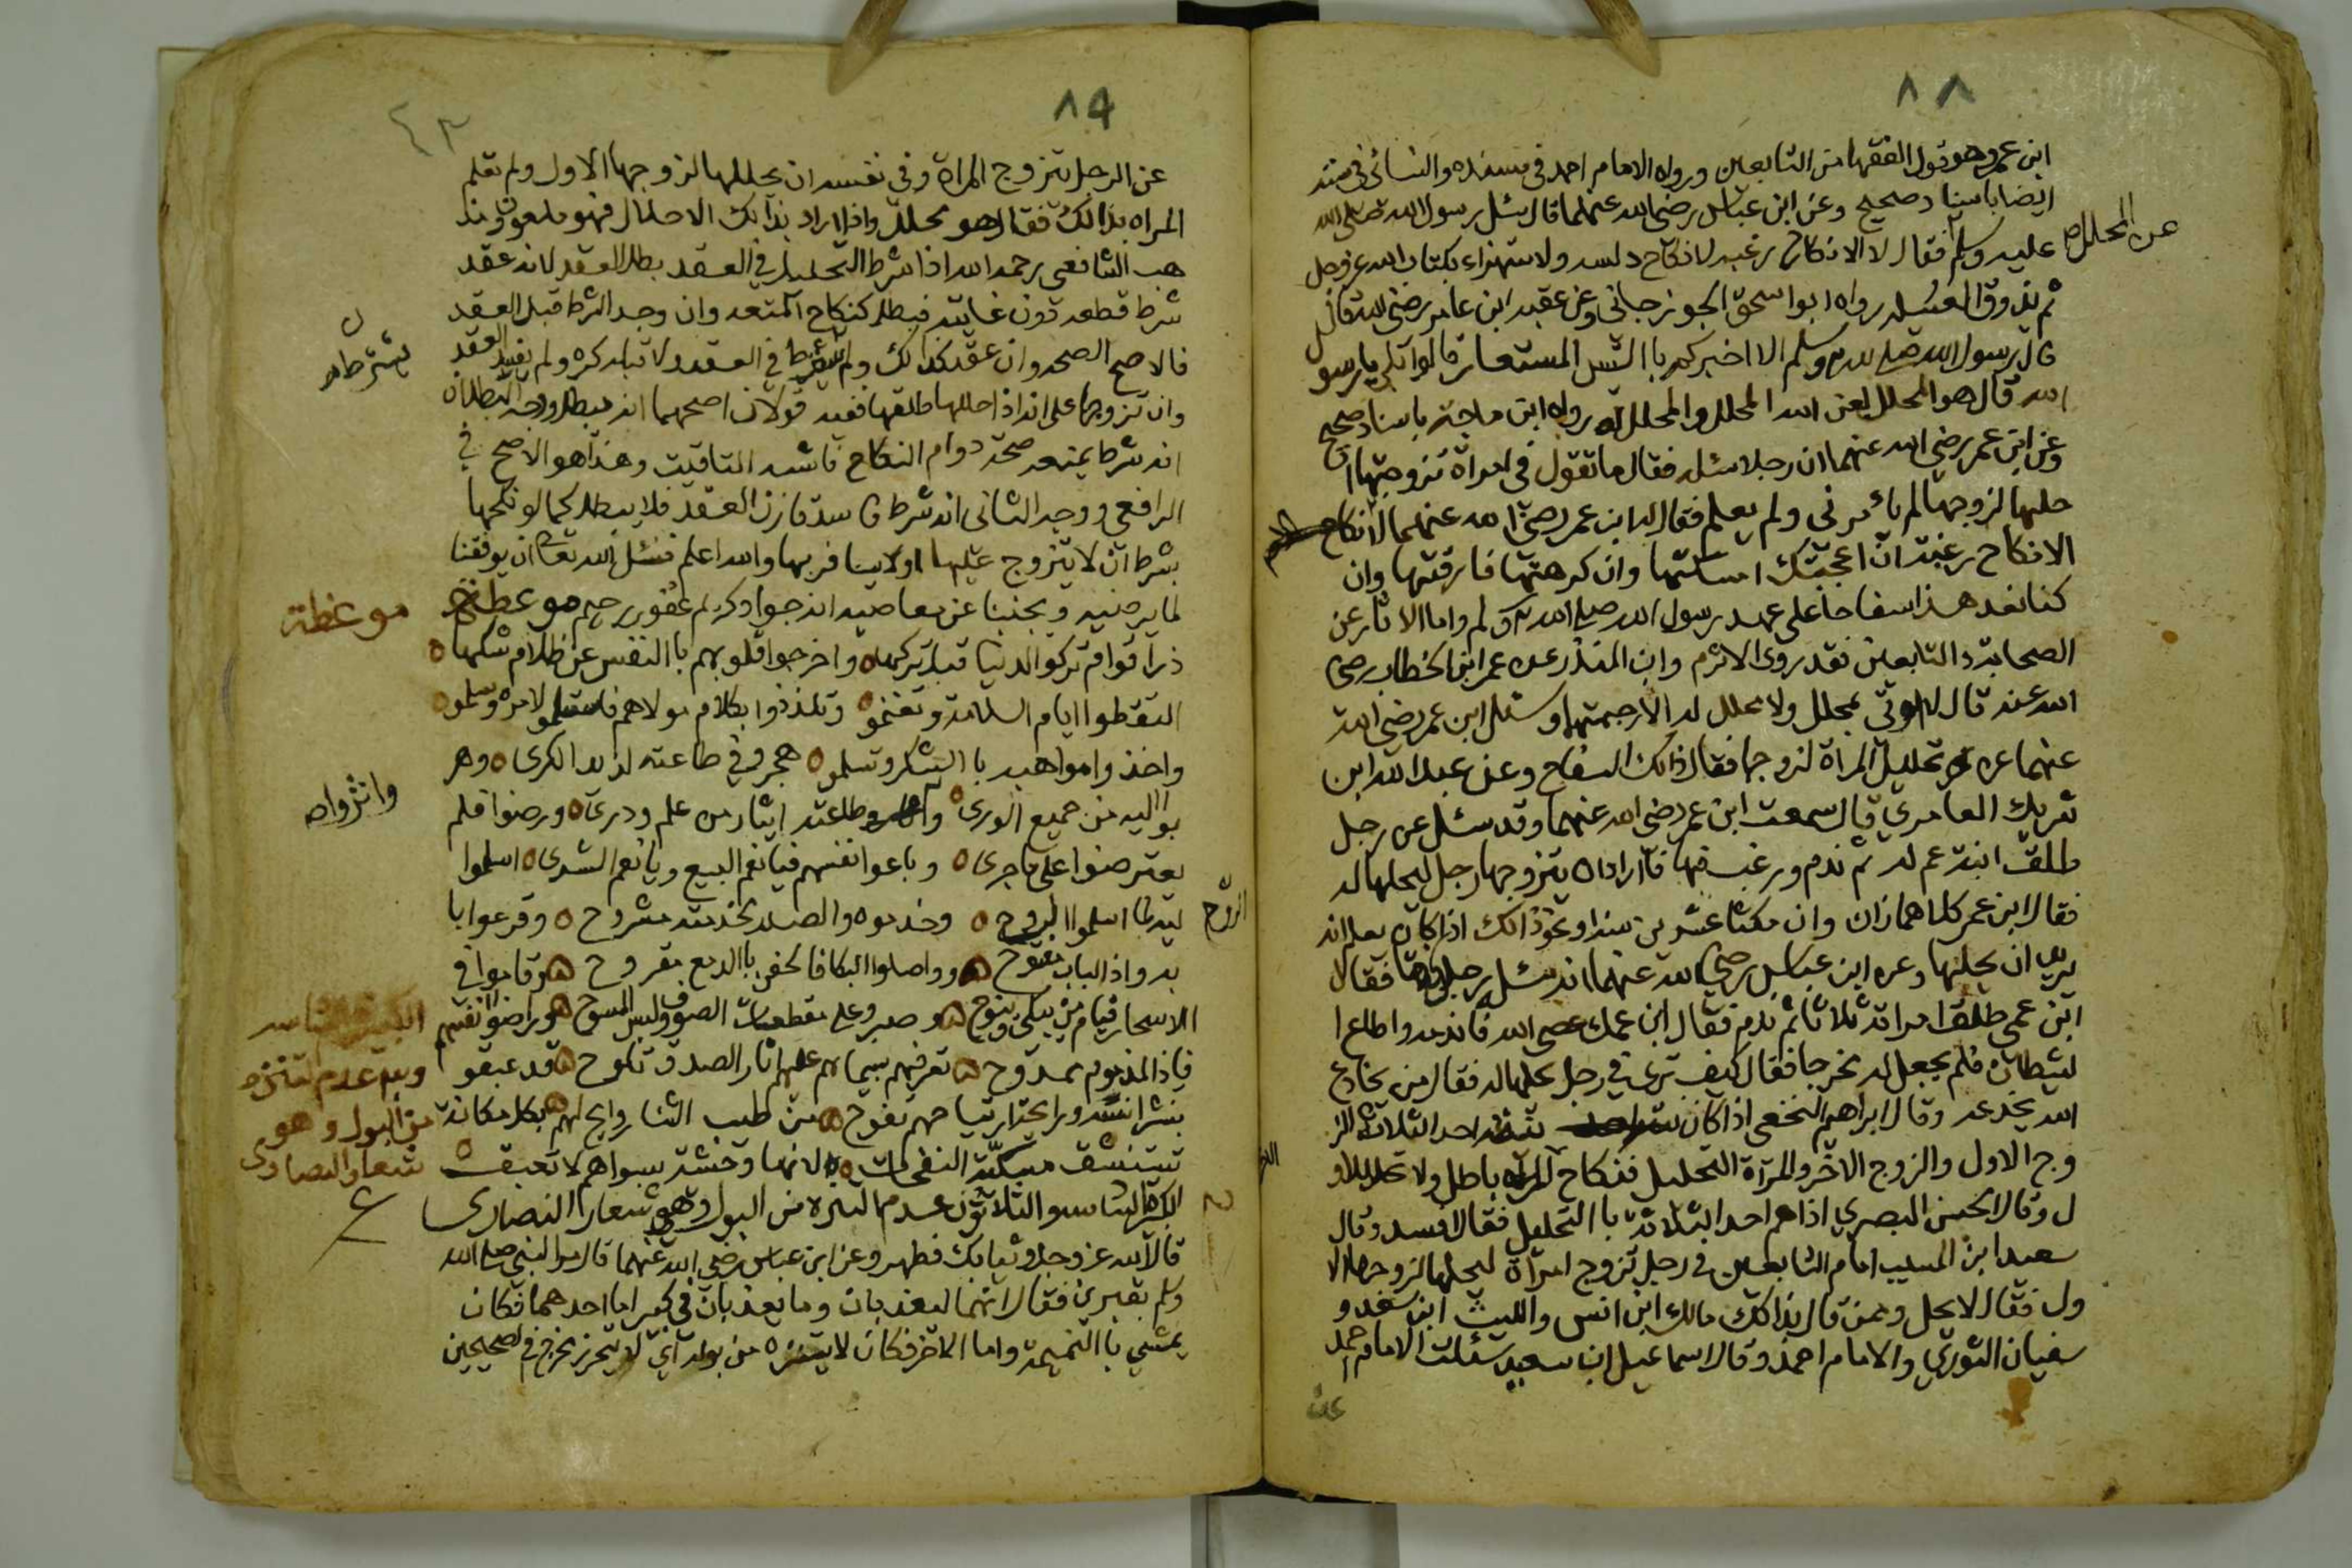 ٨٨
ابن عمر وهو قول الفقها من التابعين ورواه الامام احمد في مسنده والنسائي في سننه
ايضا باسناد صحيح وعن ابن عباس رضي الله عنهما قال سئل رسول الله صلى الله
عن المحلل
عليه وسلم فقال لا الا نكاح رغبه لا نكاح دلسه ولا ستهزاء بكتاب الله عز وجل
ثم يذوق العسيله رواه ابوا سحق الجوزجاني وعن عقبه ابن عامر رضي الله قال
قال رسول الله صلى الله وسلم الا اخبركم با التيس المستعار قالوا بلى يا رسو
الله قال هو المحلل لعن الله المحلل والمحلل له رواه ابن ماجة باسناد صحيح
وعن ابن عمر رضي الله عنهما ان رجلا سئله فقال ما تقول في امراة تزوجتها ا
حلها لزوجها لم يأمرني ولم يعلم فقال له ابن عمر رضي الله عنهما لا نكاح
الا نكاح رغبة ان اعجبتك امسكتها وان كرهتها فارقتها وان
كنا نعد هذا سفاحا على عهد رسول الله صلى الله وسلم واما الاثار عن
الصحابة والتابعين فقد روى الاثرم وابن المنذر عن عمر ابن الخطاب رضي
الله عنه قال لا اوتي بمحلل ولا محلل له الا رجمتهما وسئل ابن عمر رضي الله
عنهما عن تحليل المراة لزوجها فقال ذالك السفاح وعن عبد الله ابن
شريك العامري قال سمعت ابن عمر رضي الله عنهما وقد سئل عن رجل
طلق ابنة عم له ثم ندم ورغب فيها فاراد ان يتزوجها رجل ليحلها له
فقال ابن عمر كلاهما زان وان مكثا عشرين سنه او نحو ذالك اذا كان يعلم انه
يريد ان يحلها وعن ابن عباس رضي الله عنهما انه سئله رجل فقال
ابن عمي طلق امراته ثلاثا ثم ندم فقال ابن عمك عصى الله فاندمه واطاع ا
لشيطان فلم يجعل له مخرجا فقال كيف ترى في رجل يحلها له فقال من يخادع
الله يخدعه وقال ابراهيم النخعي اذا كان نية احد الثلاثة الز
وج الاول والزوج الاخر والمراة التحليل فنكاح الاخر باطل ولا تحل للاو
ل وقال الحسن البصري اذا هم احد الثلاثة با التحليل فقد افسد وقال
سعيد ابن المسيب امام التابعين في رجل تزوج امرأة ليحلها لزوجها الا
ول فقال لا تحل وممن قال بذالك مالك ابن انس والليث ابن سعد و
سفيان الثوري والامام احمد وقال اسماعيل ابن سعيد سئلت الامام احمد
عن
٨٩
٤٣
عن الرجل يتزوج المراة وفي نفسه ان يحللها لزوجها الاول ولم تعلم
المراه بذالك فقال هو محلل واذا اراد بذالك الاحلال فهو ملعون ومذ
هب الشافعي رحمه الله اذا شرط التحليل في العقد بطل العقد لانه عقد
شرط قطعه دون غايته فبطل كنكاح المتعه وان وجد الشرط قبل العقد
فالاصح الصحه وان عقد كذالك ولم يشترط في العقد ولا قبله كره ولم يفسد العقد
يشترطاه
وان تزوجها على انه اذا احللها طلقها ففيه قولان اصحهما انه يبطل ووجه البطلان
انه شرط يمنع صحة دوام النكاح فاشبه التاقيت وهذا هو الاصح في
الرافعي ووجه الثاني انه شرط فاسد قارن العقد فلا يبطل كما لو نكحها
بشرط ان لا يتزوج عليها اولا يسافر بها والله اعلم فنسئل الله تعالى ان يوفقنا
لما يرضيه ويجنبنا عن معاصيه انه جواد كريم غفور رحيم موعظة
موعظة
ذر اقوام تركو الدنيا قبل تركها ٥ واخرجوا قلوبهم با النفس عن ظلام شكها ٥
التقطوا ايام السلامة وتغنمو ٥ وتلذذوا بكلام مولاهم فاستسلمو لامره وسلمو ٥
واخذوا مواهبه با الشكر وتسلمو ٥ هجرو في طاعته لذيذ الكرى ٥ وهر
بوا اليه من جميع الورى ٥ واثروا طاعته ايثار من علم ودرى ٥ ورضوا فلم
واثروا
يعترضوا على ما جرى ٥ وباعوا انفسهم فيا نعم البيع ويا نعم الشرى ٥ اسلموا
ليه لما اسلموا الروح ٥ وخدموه والصدر لخدمته مشروح ٥ وقرعوا با
الروح
به واذ الباب مفتوح ٥ وواصلوا البكا فالجفن با الدمع مقروح ٥ وقاموا في
الاسحار قيام من يبكي وينوح ٥ وصبرو على مقطعات الصوف ولبس المسوح ٥ وراضوا انفسهم
فاذا المذموم ممدوح ٥ تعرفهم بسيماهم عليهم اثار الصدق تلوح ٥ قد عبقو
بنشر انسه ورايحة ارتياحهم تفوح ٥ من طيب الثنا روايح لهم بكل مكان
تستنشق مسكية النفحات ٥ الا انها وحشية بسواهم لا تعبق ٥
الكبيرة الخامسه والثلاثون عدم التنزه من البول وهو شعار النصارى
قال الله عز وجل وثيابك فطهر وعن ابن عباس رضي الله عنهما قال مر النبي صلى الله
وسلم بقبرين فقال انهما ليعذبان وما يعذبان في كبير اما احدهما فكان
يمشي با النميمة واما الاخر فكان لا يستنزه من بوله اي لا يتحرز مخرج في الصحيحين
الكبيرة الخامسه
عدم تنزه
من البول وهو
شعار النصارى